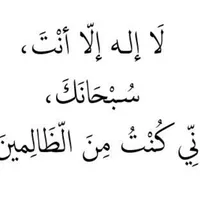 لَا إلـه إلّا أنْتَ،
سُبْحَانَكَ،
نِّي كُنْتُ مِنَ الّظَالِمينَ